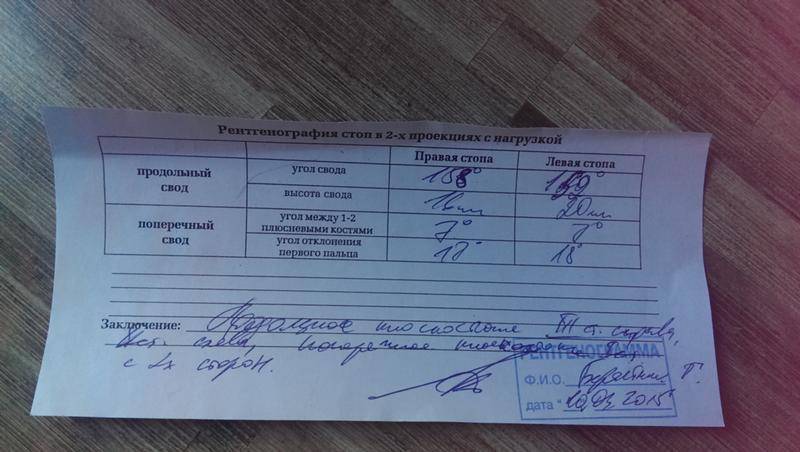 Рентгенография стоп в 2-х проекциях с нагрузкой
Правая стопа Левая стопа
продольный свод
угол свода
высота свода 20мм
поперечный свод
угол между 1-2 плюсневыми костями 7° 7°
угол отклонения первого пальца 18°
Заключение: Продольное плоскостопие III ст. справа,
II ст. слева, поперечное плоскостопие I ст.
с 2х сторон.
РЕНТГЕНОГРАММА
Ф.И.О.
дата "10.03.2015